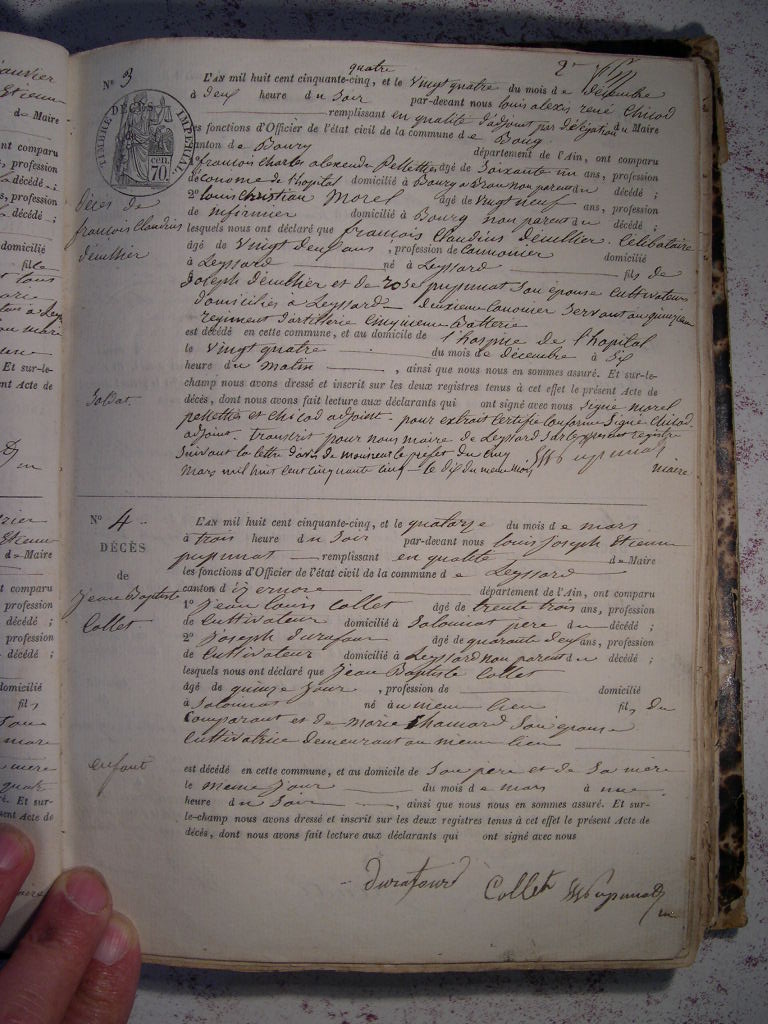 quatre
N° 3 L'AN mil huit cent cinquante-cinq, et le Vingt quatre du mois de Décembre
à Deux heure du Soir par-devant nous louis alexis rené Chicod
remplissant en qualité d'adjoint par délégation du Maire
les fonctions d'Officier de l'état civil de la commune de Bourg
canton de Bourg département de l'Ain, ont comparu
1° francois Charles alexandre Pellettes âgé de Soixante un ans, profession
d'économe de l'hopital domicilié à Bourg Brou non parent du décédé ;
2° louis Christian Morel âgé de Vingt neuf ans, profession
de infirmier domicilié à Bourg non parent du décédé ;
lesquels nous ont déclaré que francois Claudius Démillier. Célibataire
âgé de Vingt deux ans, profession de Canonier domicilié
à Leyssard né à Leyssard fils de
Joseph Démillier et de rose pupunat Son épouse Cultivateurs
domiciliés à Leyssard deuxieme Canonier Servant au quinzieme
regiment d'artillerie Cinquieme Batterie
est décédé en cette commune, et au domicile de l'hospice de l'hopital
le Vingt quatre du mois de décembre à Six
heure du Matin, ainsi que nous nous en sommes assuré. Et sur-le-
champ nous avons dressé et inscrit sur les deux registres tenus à cet effet le présent Acte de
décès, dont nous avons fait lecture aux déclarants qui ont signé avec nous Signé morel
pellettes et Chicod adjoint. pour extrait Certifié Conforme Signé Chicod.
adjoint. transcrit pour nous maire de Leyssard Sur le present registre
Suivant la lettre d'avis de monsieur le prefet du Cinq
Mars mil huit cent cinquante cinq — le dix du meme mois
pupunat
maire
TIMBRE IMPÉRIAL
cen. 70.
Décès de
francois Claudius
Démillier
Soldat
N° 4 L'AN mil huit cent cinquante-cinq, et le quatorze du mois de mars
DÉCÈS
à trois heure du Soir par-devant nous Louis Joseph Etienne
pupunat remplissant en qualité de Maire
de
les fonctions d'Officier de l'état civil de la commune de Leyssard
Jean Baptiste
Collet
canton d'izernore département de l'Ain, ont comparu
1° Jean Louis Collet âgé de trente trois ans, profession
de Cultivateur domicilié à Solomiat père du décédé ;
2° Joseph Durafour âgé de quarante deux ans, profession
de Cultivateur domicilié à Leyssard non parent du décédé ;
lesquels nous ont déclaré que Jean Baptiste Collet
âgé de quinze Jour, profession de domicilié
à Solomiat né au meme lieu fils du
Comparant et de Marie Chamard Son épouse
Cultivatrice demeurant au meme lieu
enfant
est décédé en cette commune, et au domicile de Son père et de Sa mère
le meme Jour du mois de mars à une
heure du Soir, ainsi que nous nous en sommes assuré. Et sur-
le-champ nous avons dressé et inscrit sur les deux registres tenus à cet effet le présent Acte de
décès, dont nous avons fait lecture aux déclarants qui ont signé avec nous
Durafour Collet pupunat